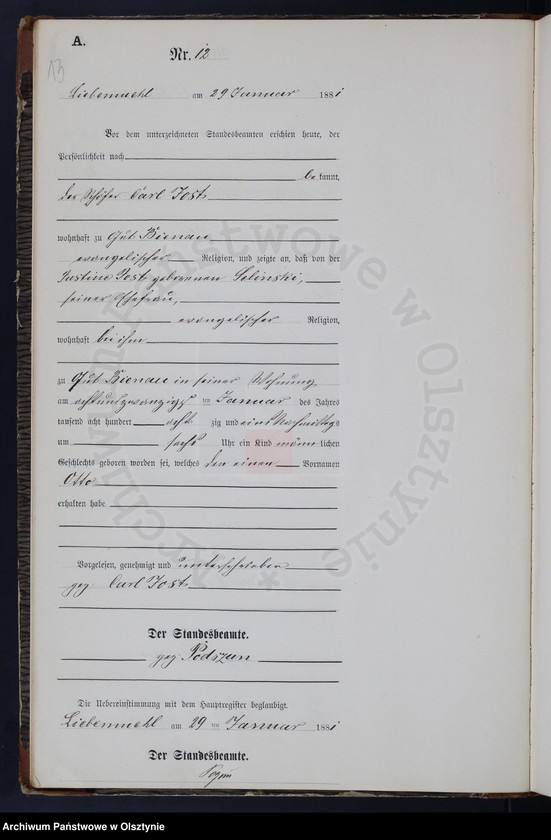 A.
13
Nr. 12
Liebemuehl am 29 Januar 1881
Vor dem unterzeichneten Standesbeamten erschien heute, der
Persönlichkeit nach
be kannt,
der Schäfer Carl Jost
wohnhaft zu Gut Bienau
evangelischer Religion, und zeigte an, daß von der
Justine Jost geborenen Selinski,
seiner Ehefrau,
evangelischer Religion,
wohnhaft bei ihm
zu Gut Bienau in seiner Wohnung
am achtundzwanzigst ten Januar des Jahres
tausend acht hundert acht zig und eins Nachmittags
um sechs Uhr ein Kind männ lichen
Geschlechts geboren worden sei, welches den einen Vornamen
Otto
erhalten habe
Vorgelesen, genehmigt und unterschrieben
gez Carl Jost
Der Standesbeamte.
gez Podszun
Die Uebereinstimmung mit dem Hauptregister beglaubigt.
Liebemuehl am 29 ten Januar 1881
Der Standesbeamte.
Archiwum Państwowe w Olsztynie
Archiwum Państwowe w Olsztynie